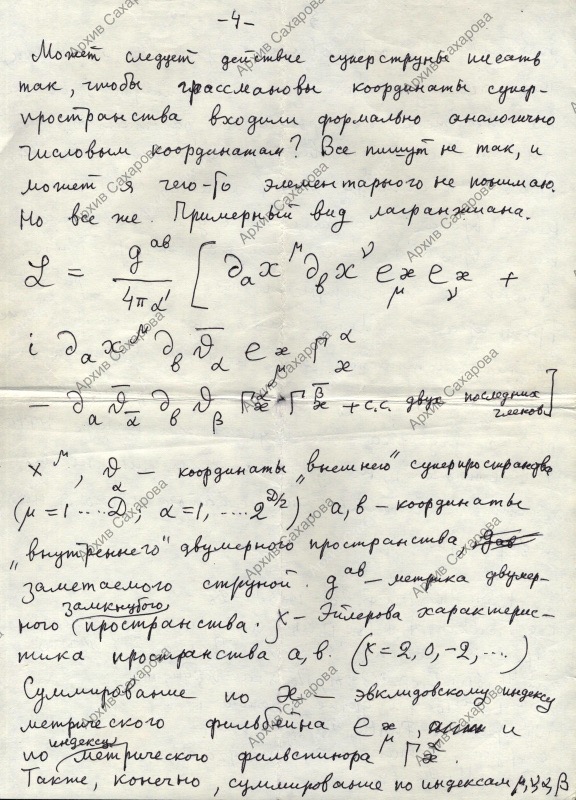 -4-
Может следует действие суперструны писать
так, чтобы грассмановы координаты супер-
пространства входили формально аналогично
числовым координатам? Все пишут не так, и
может я чего-то элементарного не понимаю.
Но все же. Примерный вид лагранжиана.
L = g^{ab} / 4πα' [ ∂_a x^μ ∂_b x^ν e_{μ ϰ} e_{ν ϰ} +
i ∂_a x^μ ∂_b ϑ̄_α e_{μ ϰ} Γ^α_ϰ
− ∂_a ϑ̄_α ∂_b ϑ_β Γ^α_ϰ Γ^β̄_ϰ + с.с. двух последних членов ]
x^μ, ϑ_α — координаты "внешнего" суперпространства
(μ = 1 .... D; α = 1, .... 2^{D/2}). a, b — координаты
"внутреннего" двумерного пространства,
заметаемого струной. g^{ab} — метрика двумер-
ного замкнутого пространства. χ — Эйлерова характерис-
тика пространства a, b. (χ = 2, 0, -2, ....)
Суммирование по ϰ — эвклидовскому индексу
метрического фильбейна e_{μ ϰ}, и
по индексу метрического фильспинора Γ^α_ϰ.
Также, конечно, суммирование по индексам μ, ν, α, β
Архив Сахарова